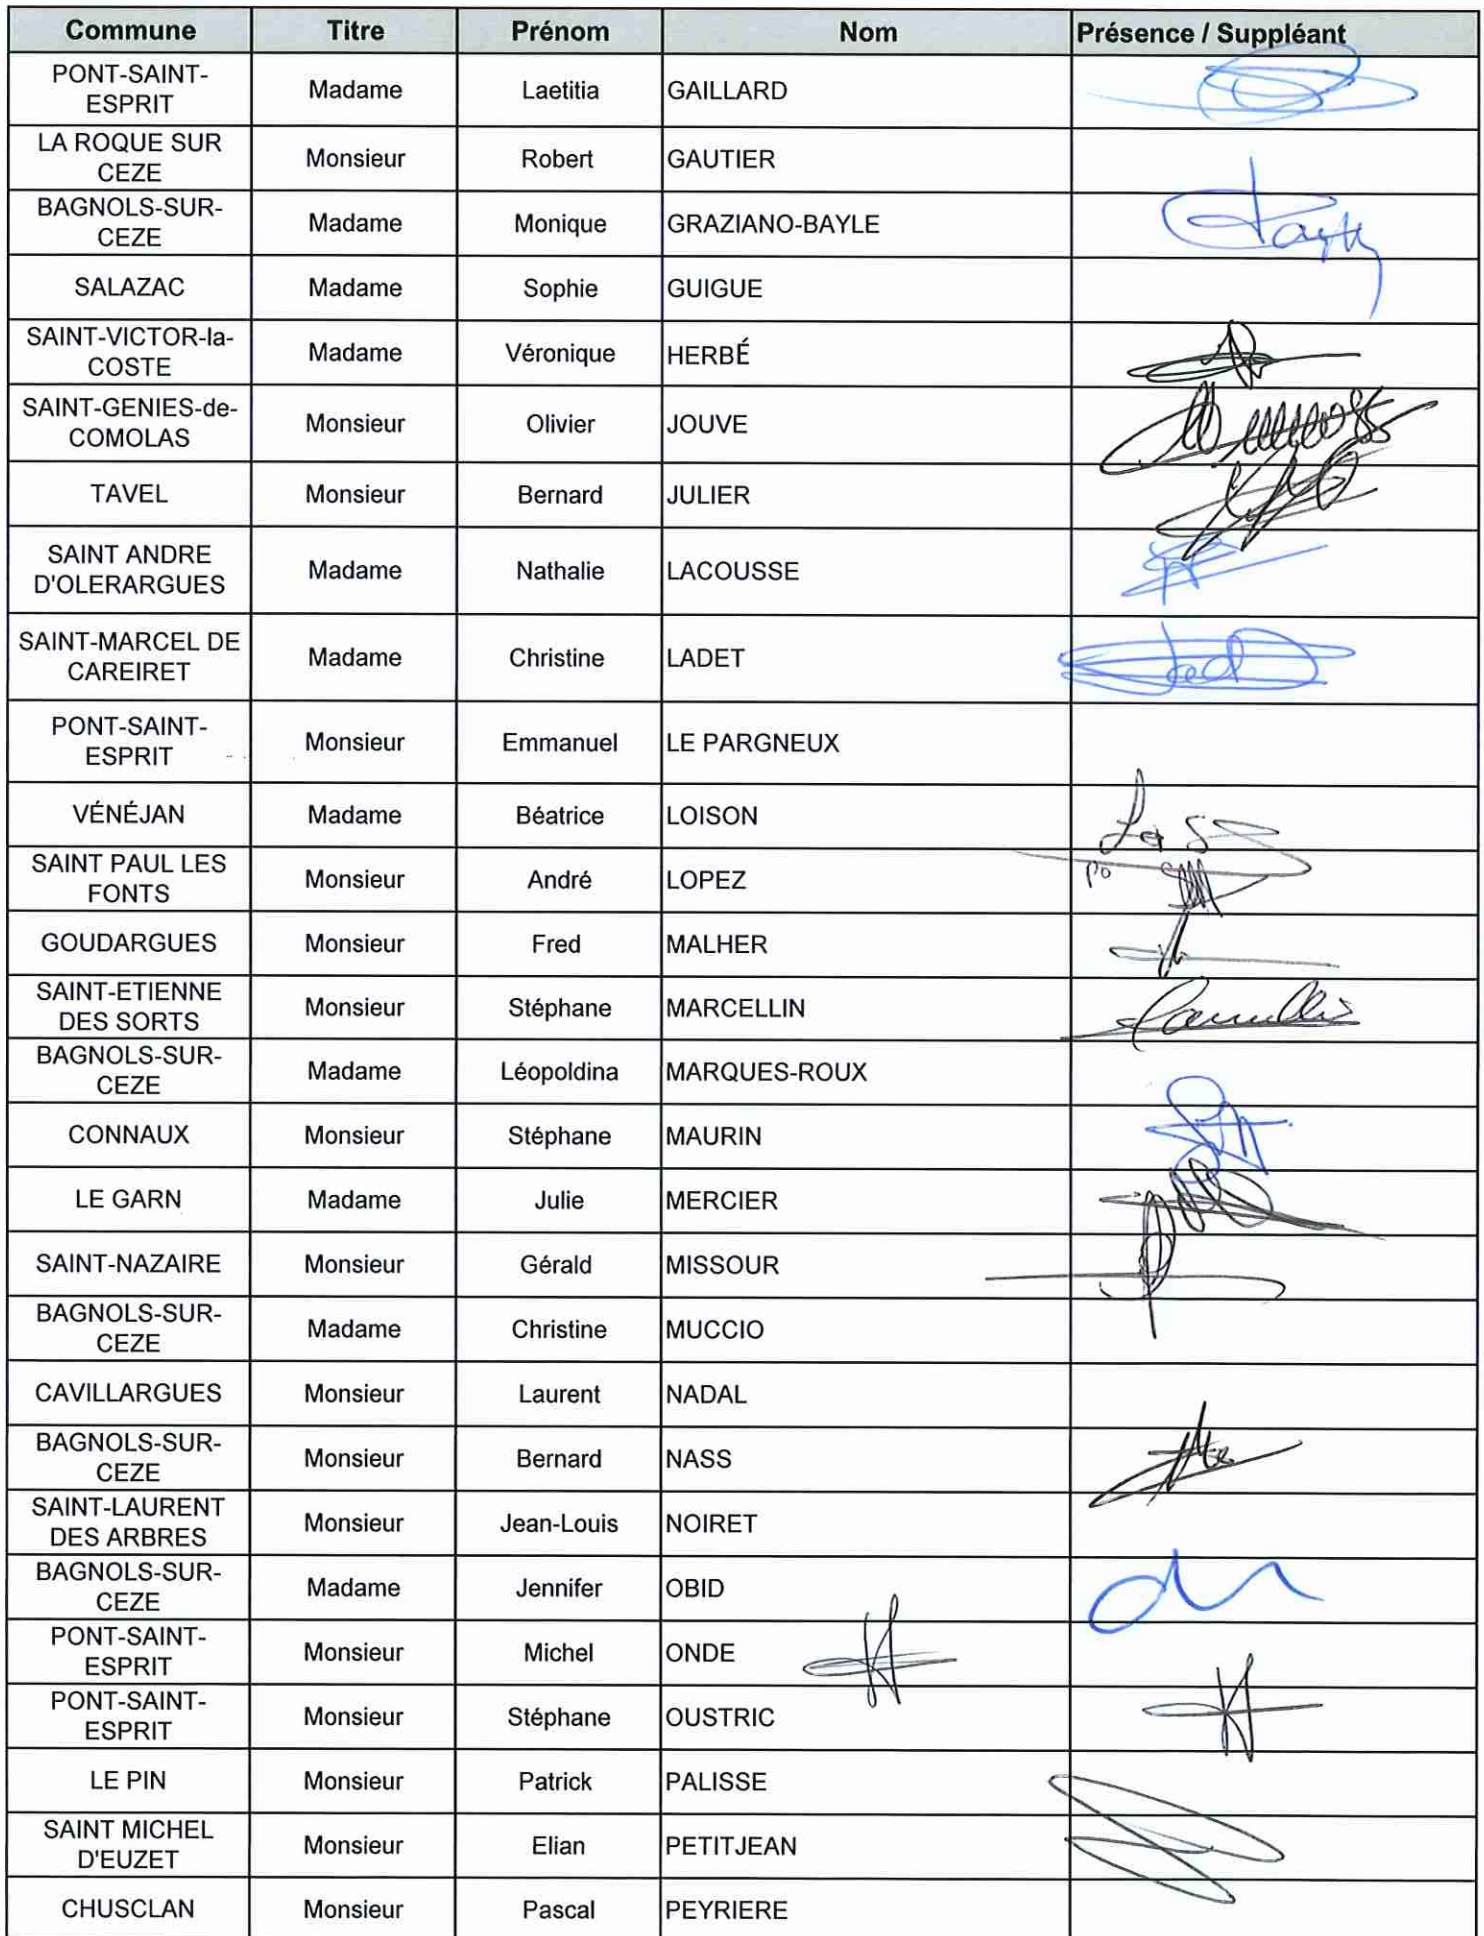 Commune Titre Prénom Nom Présence / Suppléant
PONT-SAINT-
ESPRIT Madame Laetitia GAILLARD
LA ROQUE SUR
CEZE Monsieur Robert GAUTIER
BAGNOLS-SUR-
CEZE Madame Monique GRAZIANO-BAYLE
SALAZAC Madame Sophie GUIGUE
SAINT-VICTOR-la-
COSTE Madame Véronique HERBÉ
SAINT-GENIES-de-
COMOLAS Monsieur Olivier JOUVE
TAVEL Monsieur Bernard JULIER
SAINT ANDRE
D'OLERARGUES Madame Nathalie LACOUSSE
SAINT-MARCEL DE
CAREIRET Madame Christine LADET
PONT-SAINT-
ESPRIT Monsieur Emmanuel LE PARGNEUX
VÉNÉJAN Madame Béatrice LOISON
SAINT PAUL LES
FONTS Monsieur André LOPEZ po
GOUDARGUES Monsieur Fred MALHER
SAINT-ETIENNE
DES SORTS Monsieur Stéphane MARCELLIN
BAGNOLS-SUR-
CEZE Madame Léopoldina MARQUES-ROUX
CONNAUX Monsieur Stéphane MAURIN
LE GARN Madame Julie MERCIER
SAINT-NAZAIRE Monsieur Gérald MISSOUR
BAGNOLS-SUR-
CEZE Madame Christine MUCCIO
CAVILLARGUES Monsieur Laurent NADAL
BAGNOLS-SUR-
CEZE Monsieur Bernard NASS
SAINT-LAURENT
DES ARBRES Monsieur Jean-Louis NOIRET
BAGNOLS-SUR-
CEZE Madame Jennifer OBID
PONT-SAINT-
ESPRIT Monsieur Michel ONDE
PONT-SAINT-
ESPRIT Monsieur Stéphane OUSTRIC
LE PIN Monsieur Patrick PALISSE
SAINT MICHEL
D'EUZET Monsieur Elian PETITJEAN
CHUSCLAN Monsieur Pascal PEYRIERE